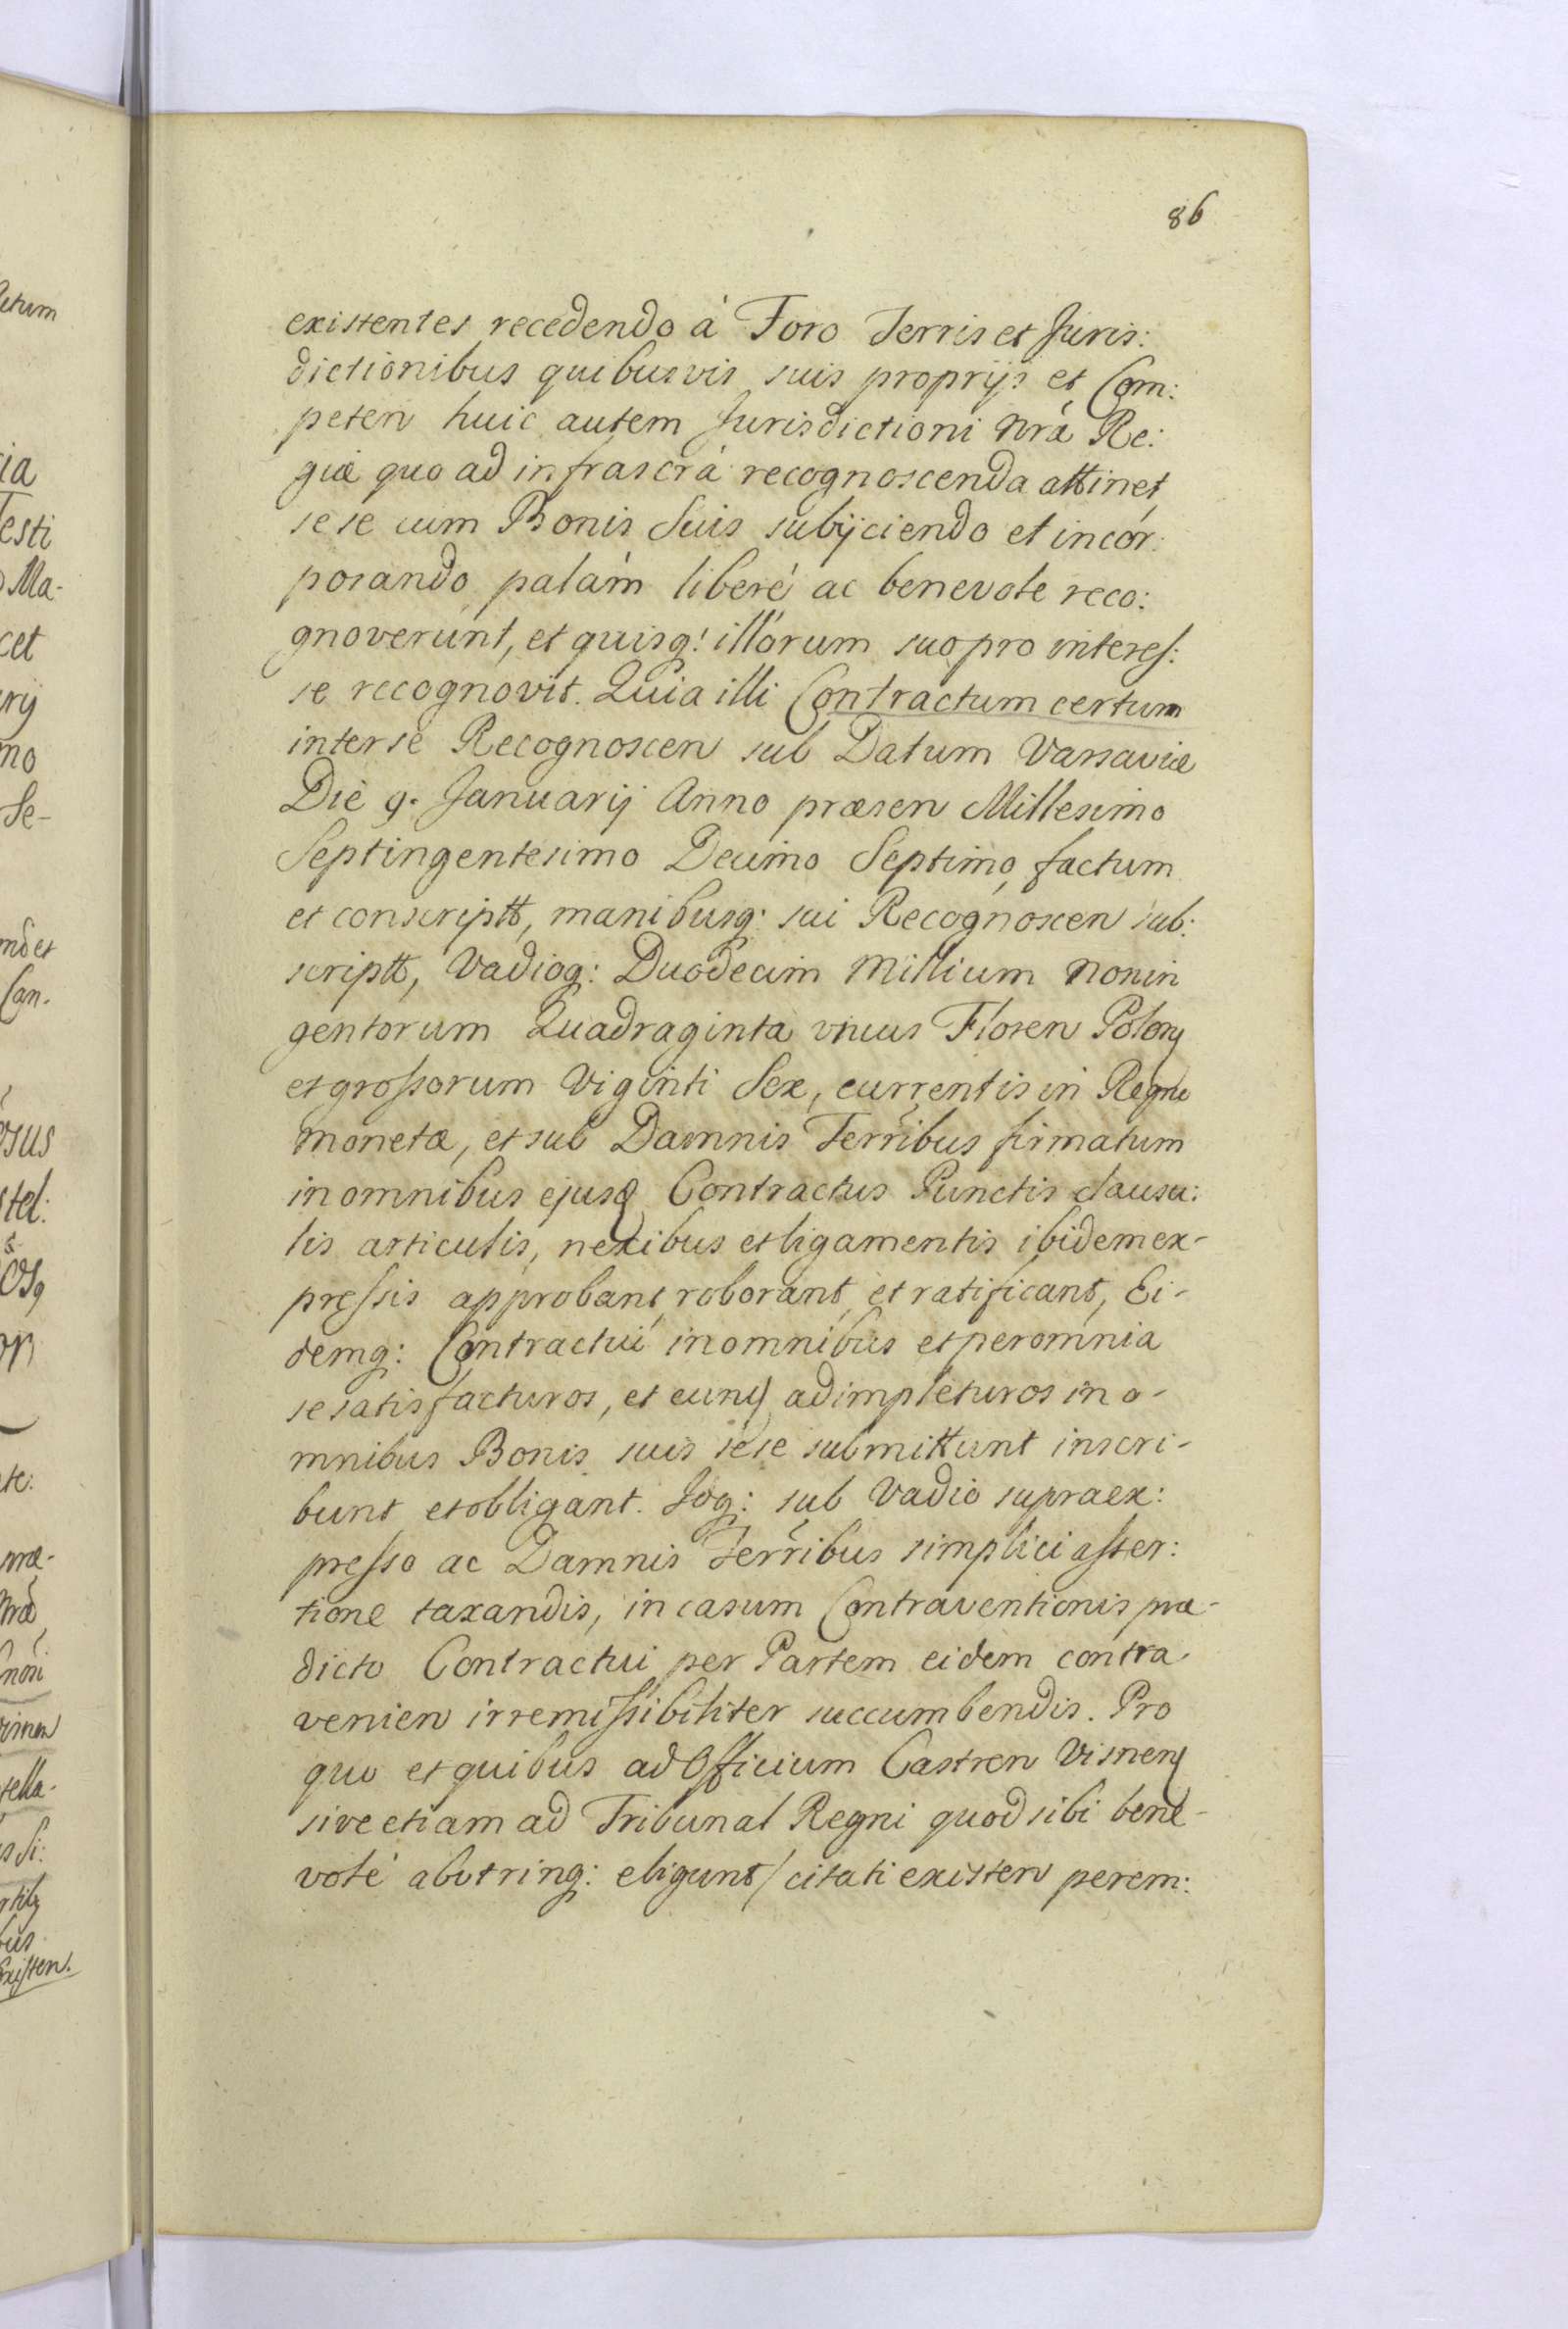 86
existentes recedendo à Foro Terris et Juris:
dictionibus quibusvis suis proprijs et Com:
peten huic autem Jurisdictioni nrã Re:
giæ quo ad infrascrã recognoscenda attinet,
se se cum Bonis Suis subijciendo et incor:
porando palám liberé ac benevole reco:
gnoverunt, et quisq: illorum suo pro interes:
se recognovit. Quia illi Contractum certum
inter se Recognoscen sub Datum Varsaviæ
Die 9. Januarij Anno præsen Millesimo
Septingentesimo Decimo Septimo, factum
et conscriptt, manibusq: sui Recognoscen sub:
scriptt, Vadioq: Duodecim Millium Nonin
gentorum Quadraginta unius Floren Polony
et grossorum Viginti Sex, currentis in Regno
monetæ, et sub Damnis Terribus firmatum
in omnibus ejusd Contractus Punctis clausu:
lis articulis, nexibus et ligamentis ibidem ex-
pressis approbant, roborant, et ratificant, Ei-
demq: Contractui in omnibus et per omnia
se satisfacturos, et eund adimpleturos in o-
mnibus Bonis suis sese submittunt inscri-
bunt et obligant. Idq: sub Vadio supra ex:
presso ac Damnis Terribus simplici asser:
tione taxandis, in casum Contraventionis præ-
dicto Contractui per Partem eidem contra
venien irremissibiliter succumbendis. Pro
quo et quibus ad Officium Castren Visnen
sive etiam ad Tribunal Regni quod sibi bene-
volé ab utrinq: eligunt/ citati existen perem: